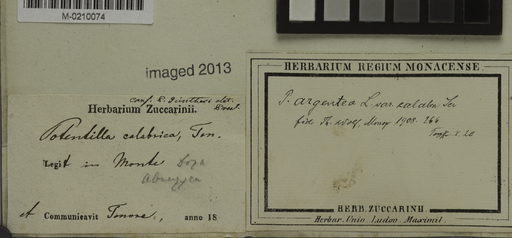 M-0210074
imaged 2013
Herbarium Zuccarinii.
Potentilla calabrica, Ten.
Legit in Monte
et Communicavit Tenore, anno 18
HERBARIUM REGIUM MONACENSE
P. argentea L. var. calabra Ser
fide Th. Wolf, Monogr 1908. 266
HERB. ZUCCARINII
Herbar. Univ. Ludov. Maximil.